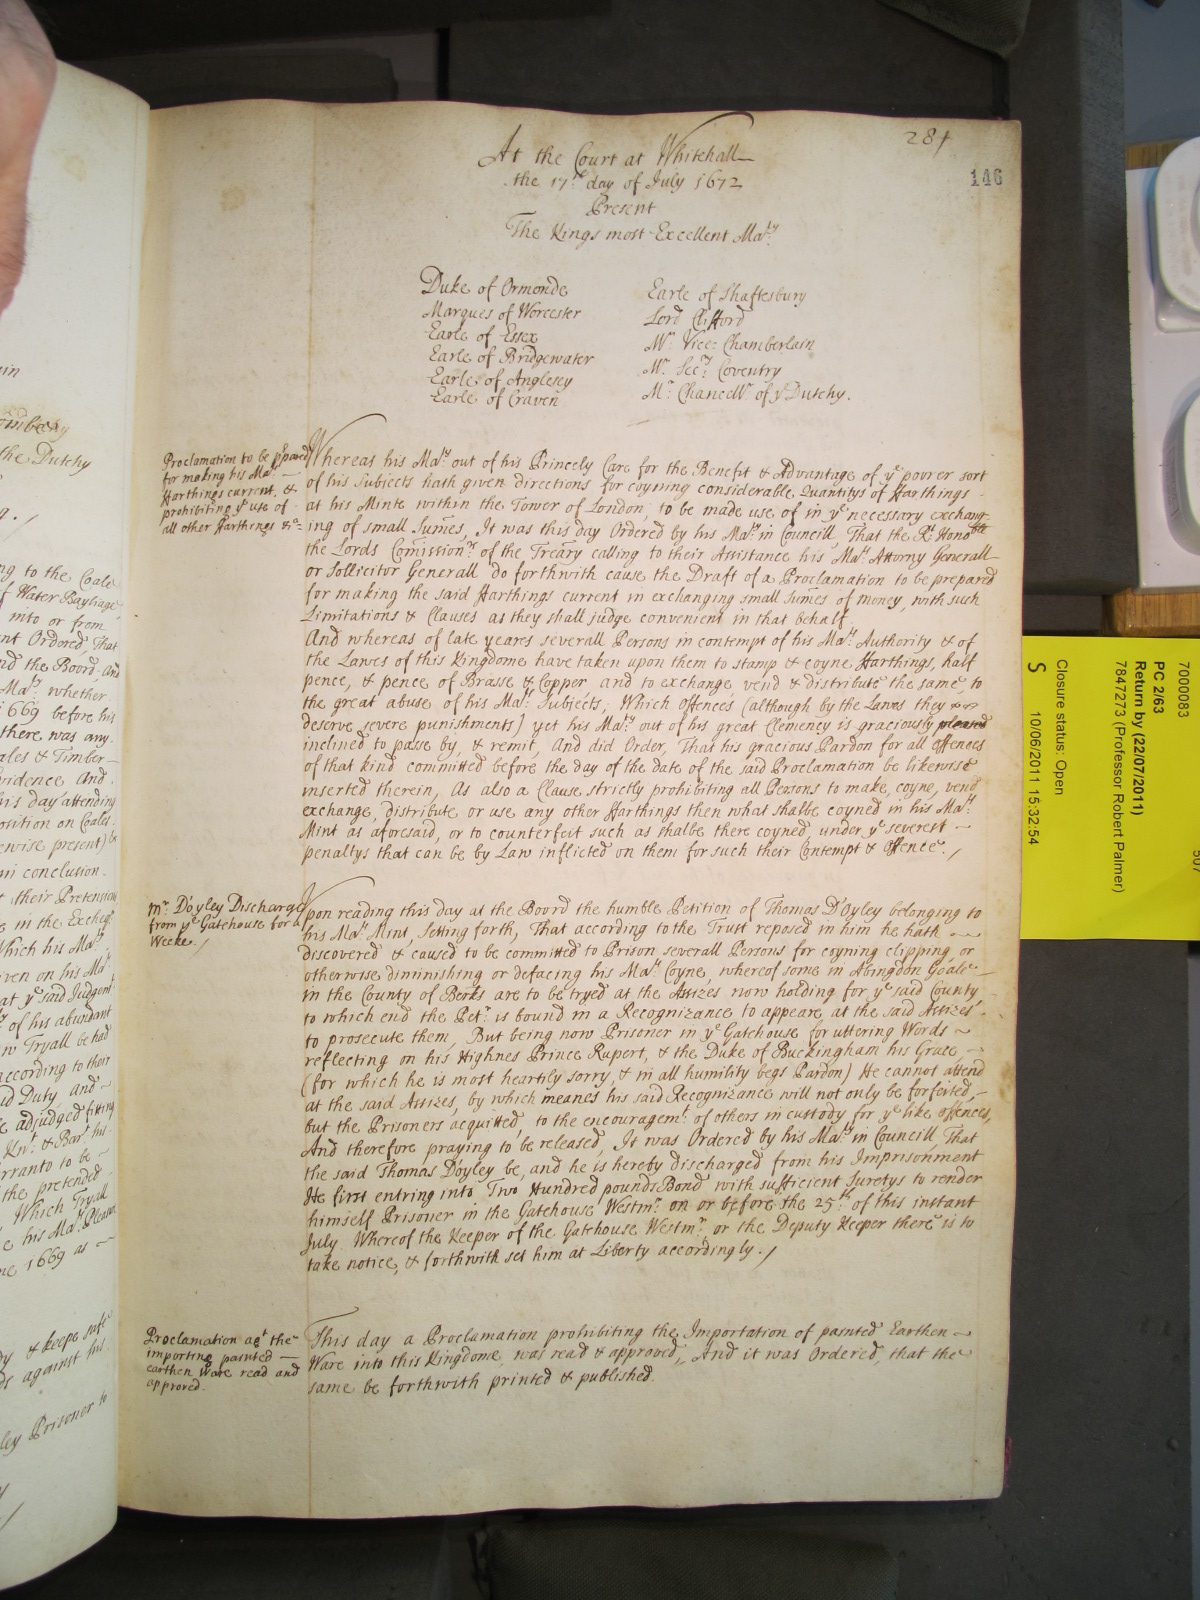 284
146
At the Court at Whitehall
the 17th day of July 1672
Present
The Kings most Excellent Maty
Duke of Ormonde
Marques of Worcester
Earle of Essex
Earle of Bridgewater
Earle of Anglesey
Earle of Craven
Earle of Shaftesbury
Lord Clifford
Mr Vice: Chamberlain
Mr Secry Coventry
Mr Chancellr of ye Dutchy.
Proclamation to be ppared
for making his Mats
ffarthings current, &
prohibiting ye use of
all other ffarthings &c
Whereas his Maty out of his Princely Care for the Benefit & Advantage of ye poorer sort
of his Subjects hath given directions for coyning considerable Quantitys of ffarthings
at his Minte within the Tower of London, to be made use of in ye necessary exchang-
ing of small Sumes, It was this day Ordered by his Maty in Councill, That the Rt Honoble
the Lords Comissionrs of the Trea͞ry calling to their Assistance his Mats Attorny Generall
or Sollicitor Generall do forthwith cause the Draft of a Proclamation to be prepared
for making the said ffarthings current in exchanging small Sumes of money, with such
Limitations & Clauses as they shall judge convenient in that behalf.
And whereas of late yeares severall Persons in contempt of his Mats Authority & of
the Lawes of this Kingdome have taken upon them to stamp & coyne ffarthings, half
pence, & pence of Brasse & Copper and to exchange vend & distribute the same, to
the great abuse of his Mats Subjects, Which offences (although by the Lawes they
deserve severe punishments) yet his Maty out of his great Clemency is graciously pleased
inclined to passe by, & remit, And did Order, That his gracious Pardon for all offences
of that kind committed before the day of the date of the said Proclamation be likewise
inserted therein, As also a Clause strictly prohibiting all Persons to make, coyne, vend
exchange, distribute or use any other ffarthings then what shalbe coyned in his Mats
Mint as aforesaid, or to counterfeit such as shalbe there coyned, under ye severest
penaltys that can be by Law inflicted on them for such their Contempt & offence. /
Mr D'oyley Discharge
from ye Gatehouse for a
Weeke. /
Upon reading this day at the Boord the humble Petition of Thomas D'Oyley belonging to
his Mats Mint, Setting forth, That according to the Trust reposed in him he hath
discovered & caused to be committed to Prison severall Persons for coyning clipping, or
otherwise diminishing or defacing his Mats Coyne, whereof some in Abingdon Goale
in the County of Berks are to be tryed at the Assizes now holding for ye said County
to which end the Petr is bound in a Recognizance to appeare, at the said Assizes
to prosecute them, But being now Prisoner in ye Gatehouse for uttering Words
reflecting on his Highnes Prince Rupert, & the Duke of Buckingham his Grace,
(for which he is most heartily sorry, & in all humility begs Pardon) He cannot attend
at the said Assizes, by which meanes his said Recognizance will not only be forfeited,
but the Prisoners acquitted, to the encouragemt of others in custody for ye like offences,
And therefore praying to be released, It was Ordered by his Maty in Councill, That
the said Thomas D'oyley be, and he is hereby discharged from his Imprisonment
He first entring into Two Hundred pounds Bond with sufficient Suretys to render
himself Prisoner in the Gatehouse Westmr on or before the 25th of this instant
July. Whereof the Keeper of the Gatehouse Westmr, or the Deputy Keeper there is to
take notice, & forthwith set him at Liberty accordingly. /
Proclamation agt the
importing painted
earthen Ware read and
approved.
This day a Proclamation prohibiting the Importation of painted Earthen
Ware into this Kingdome, was read & approved, And it was Ordered, that the
same be forthwith printed & published.
7000083
PC 2/63
Return by (22/07/2011)
7847273 (Professor Robert Palmer)
Closure status: Open
S 10/06/2011 15:32:54